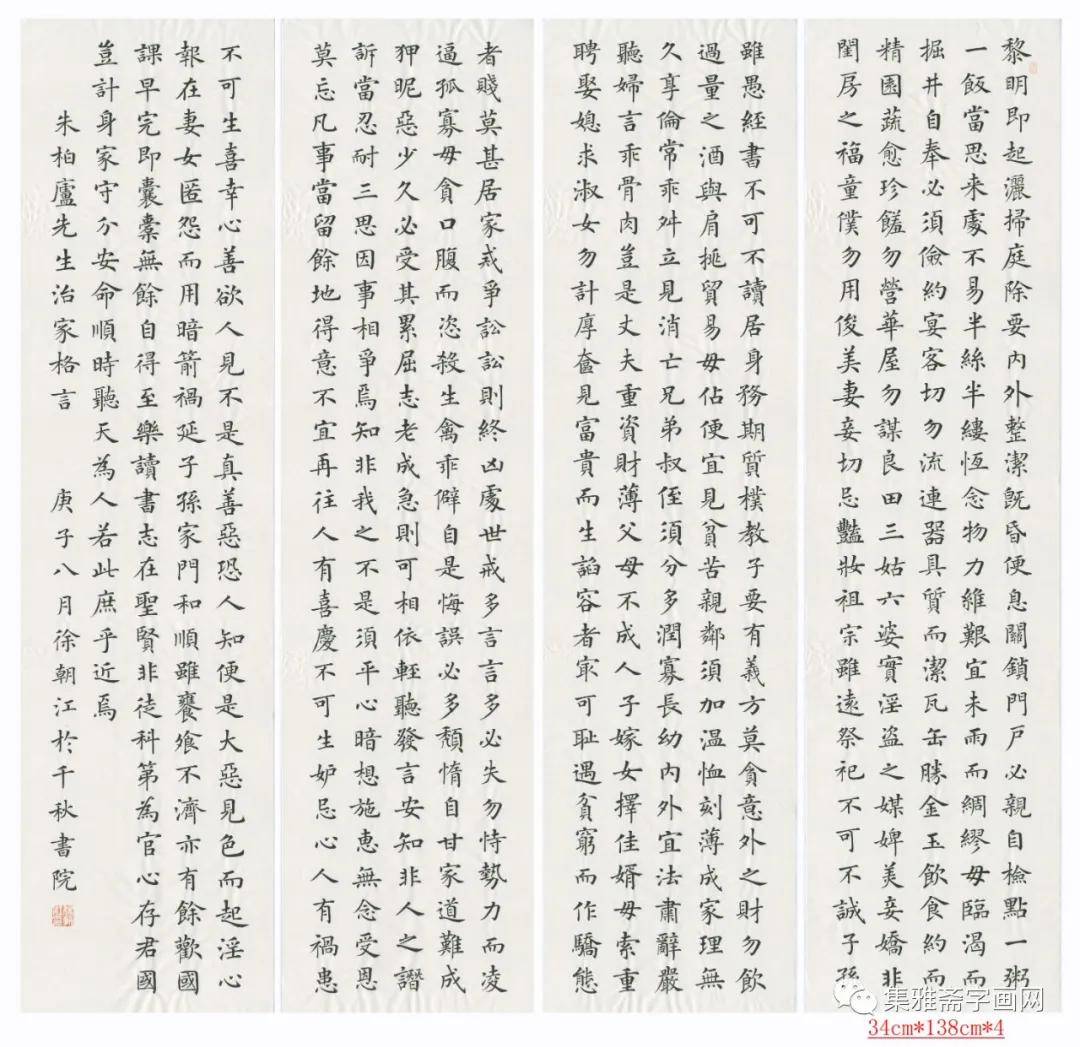 黎明即起灑掃庭除要內外整潔旣昏便息關鎖門戶必親自檢點一粥
一飯當思来處不易半絲半縷恆念物力維艱宜未雨而綢繆毋臨渴而
掘井自奉必須儉約宴客切勿流連器具質而潔瓦缶勝金玉飲食約而
精園蔬愈珍饈勿營華屋勿謀良田三姑六婆實淫盜之媒婢美妾嬌非
閨房之福童僕勿用俊美妻妾切忌豔妝祖宗雖遠祭祀不可不誠子孫
雖愚經書不可不讀居身務期質樸教子要有義方莫貪意外之財勿飲
過量之酒與肩挑貿易毋佔便宜見貧苦親鄰須加温恤刻薄成家理無
久享倫常乖舛立見消亡兄弟叔侄須分多潤寡長幼內外宜法肅辭嚴
聽婦言乖骨肉豈是丈夫重資財薄父母不成人子嫁女擇佳婿毋索重
聘娶媳求淑女勿計厚奩見富貴而生諂容者寂可恥遇貧窮而作驕態
者賤莫甚居家戒爭訟訟則終凶處世戒多言言多必失勿恃勢力而凌
逼孤寡毋貪口腹而恣殺生禽乖僻自是悔誤必多頹惰自甘家道難成
狎昵惡少久必受其累屈志老成急則可相依輕聽發言安知非人之譖
訴當忍耐三思因事相爭焉知非我之不是須平心暗想施惠無念受恩
莫忘凡事當留餘地得意不宜再往人有喜慶不可生妒忌心人有禍患
不可生喜幸心善欲人見不是真善惡恐人知便是大惡見色而起淫心
報在妻女匿怨而用暗箭禍延子孫家門和順雖饔飧不濟亦有餘歡國
課早完即囊橐無餘自得至樂讀書志在聖賢非徒科第為官心存君國
豈計身家守分安命順時聽天為人若此庶乎近焉
朱柏廬先生治家格言 庚子八月徐朝江於千秋書院
集雅斋字画网
34cm*138cm*4